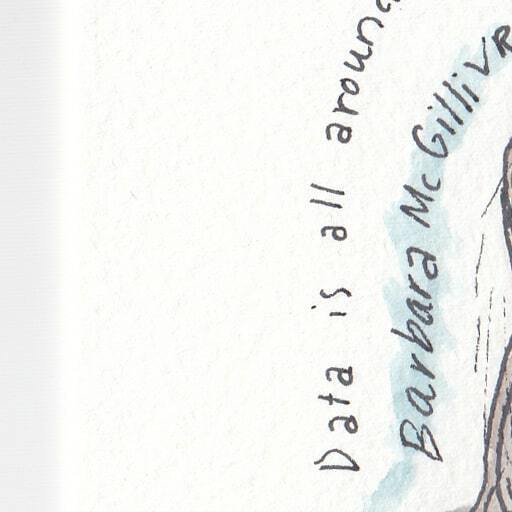 Data is all around
Barbara McGilliv